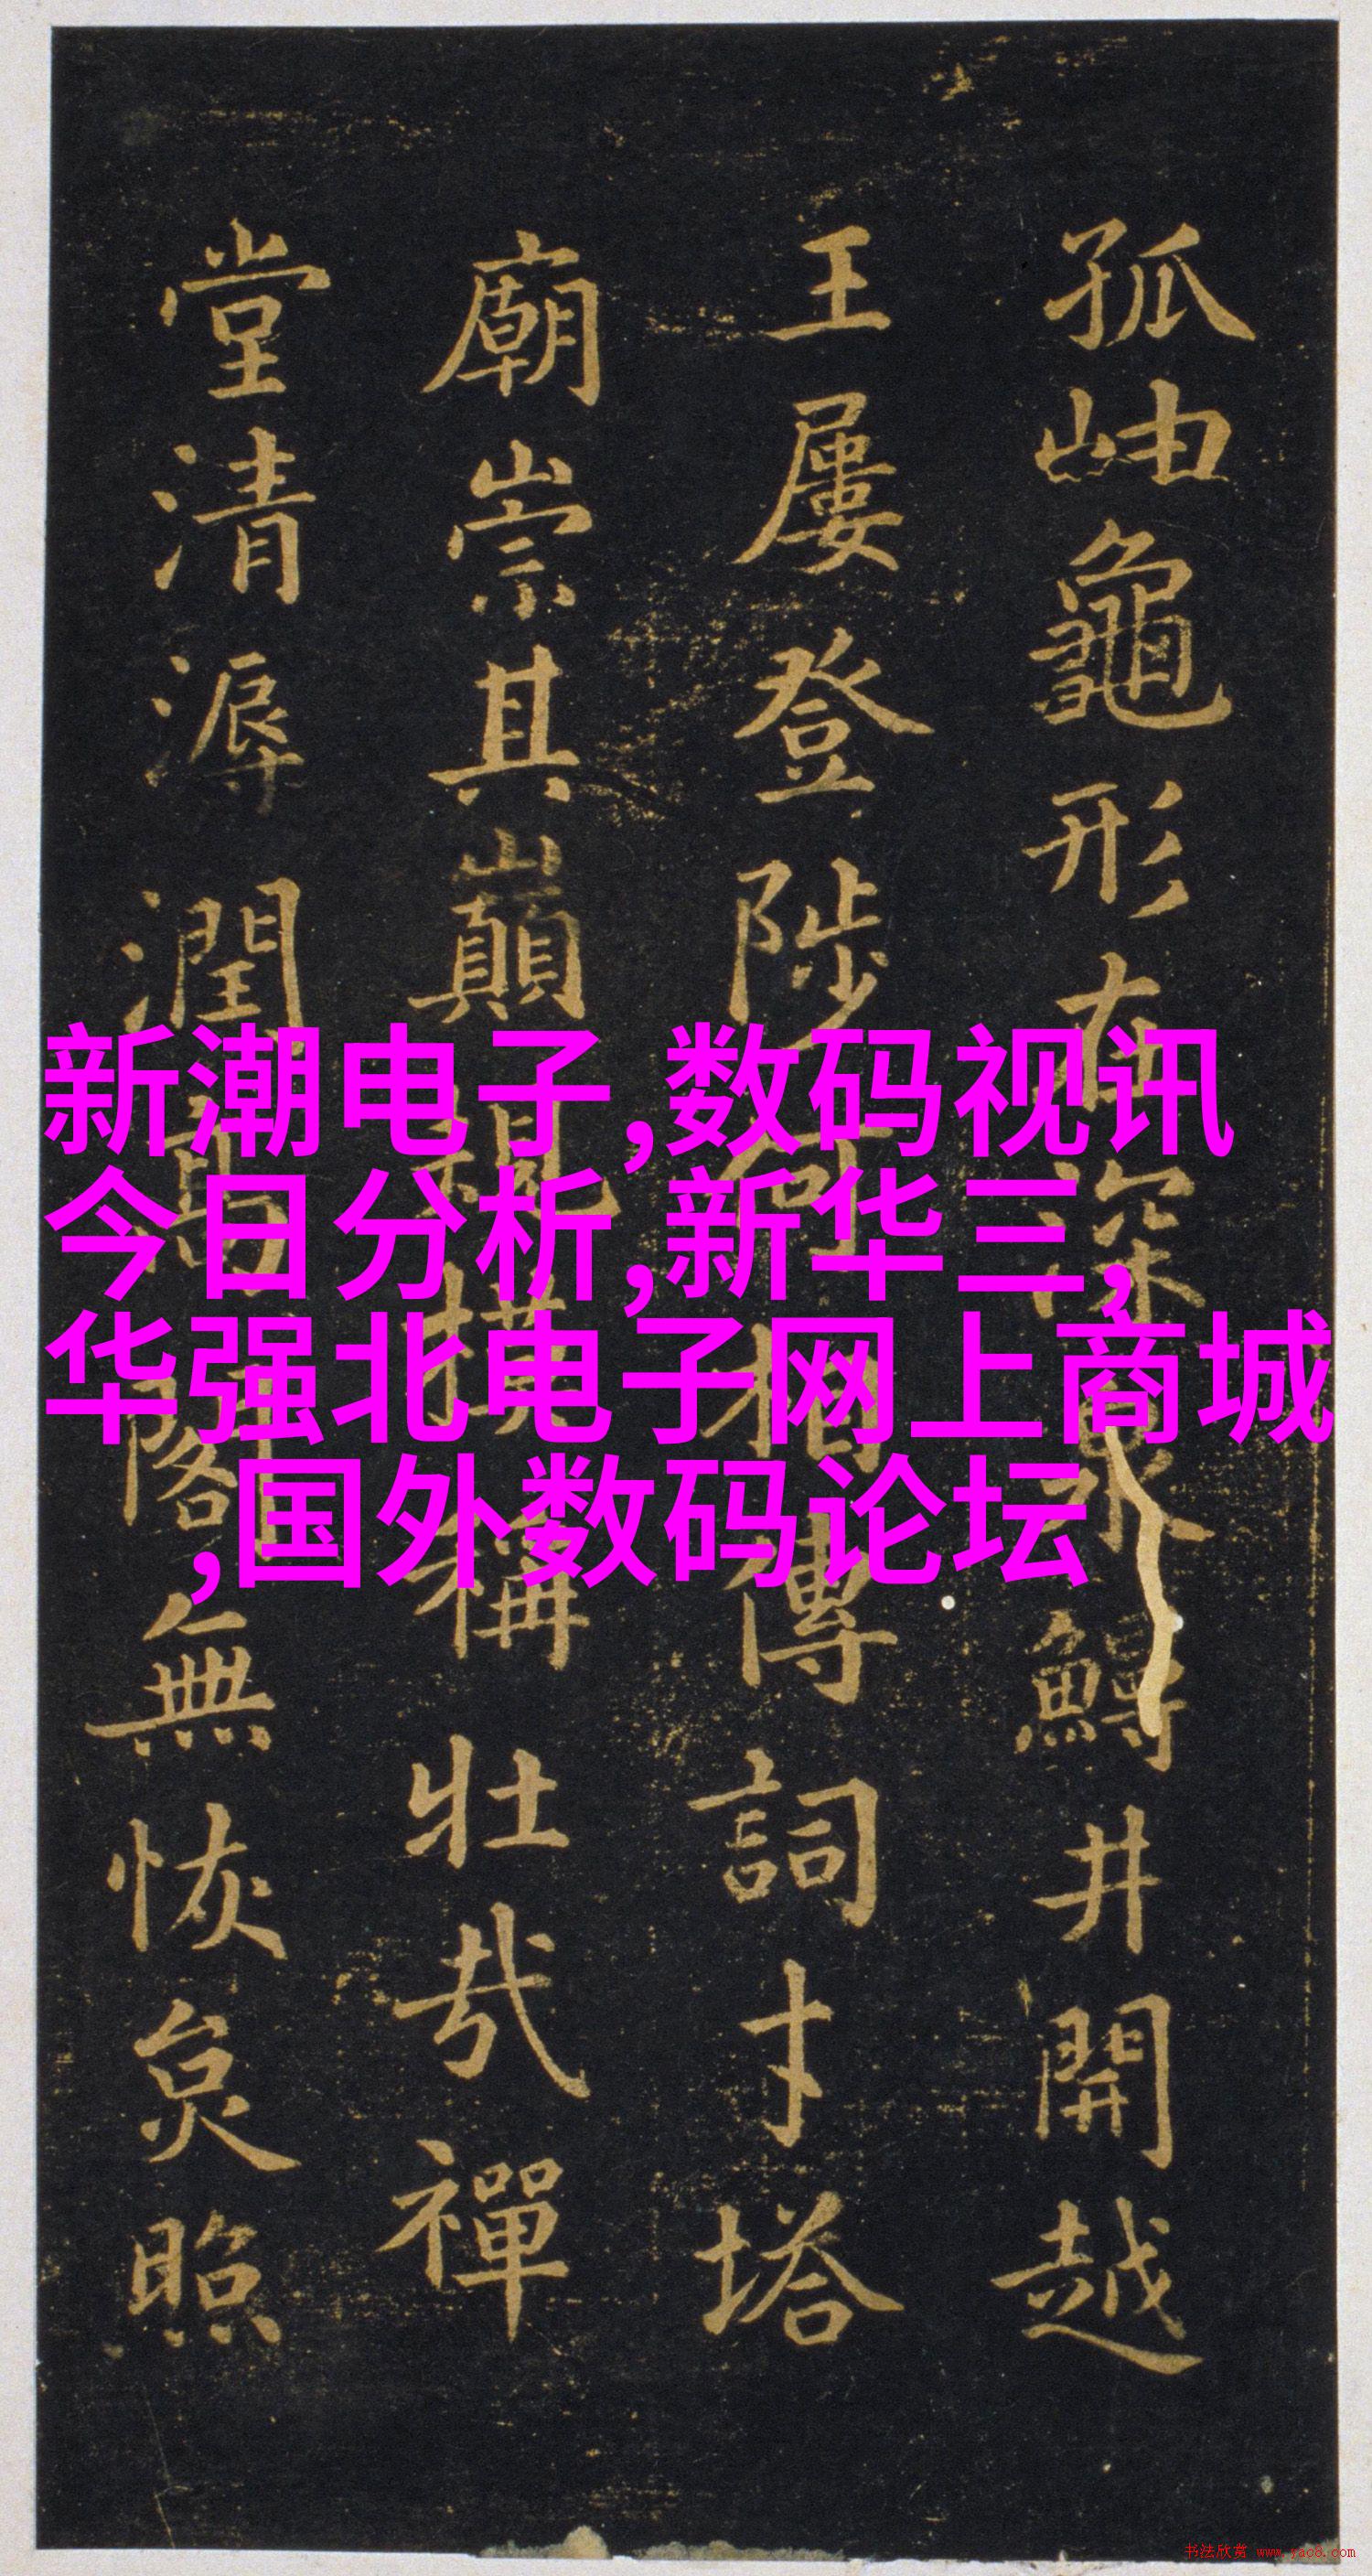 孤岫龜形在深泉井開越
王屢登陟何相傳詞才塔
廟崇其巔規模稱壯哉禪
堂清溽潤高閣無恢炱照
新潮电子,数码视讯
今日分析,新华三,
华强北电子网上商城
,国外数码论坛
书法欣赏 www.yac8.com